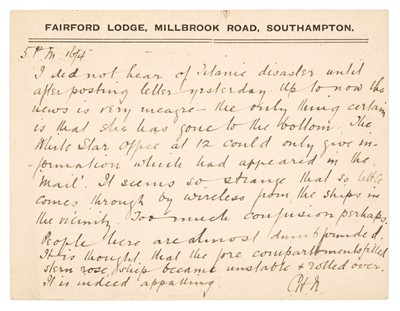 FAIRFORD LODGE, MILLBROOK ROAD, SOUTHAMPTON.
5 P.M. 16/4
I did not hear of Titanic disaster until
after posting letter yesterday. Up to now the
news is very meagre – the only thing certain
is that she has gone to the bottom. The
White Star Office at 12 could only give in-
formation which had appeared in the
'Mail'. It seems so strange that so little
comes through by wireless from the ships in
the vicinity. Too much confusion perhaps.
People here are almost dumbfounded.
It is thought that the fore compartments filled
stern rose, ship became unstable & rolled over.
It is indeed appalling.